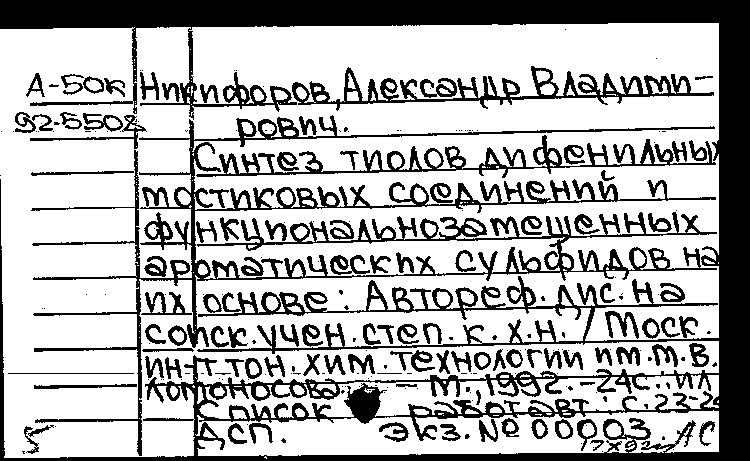 А-50к Никифоров, Александр Владими-
92-5508 рович.
Синтез тиолов дифенильных
мостиковых соединений и
функциональнозамещенных
ароматических сульфидов на
их основе: Автореф. дис. на
соиск. учен. степ. к. х.н. / Моск.
ин-т тон. хим. технологии им. М. В.
Ломоносова. - М., 1992. - 24с.: ил
Список работ авт.: с. 23-24
ДСП. Экз. № 00003.
5